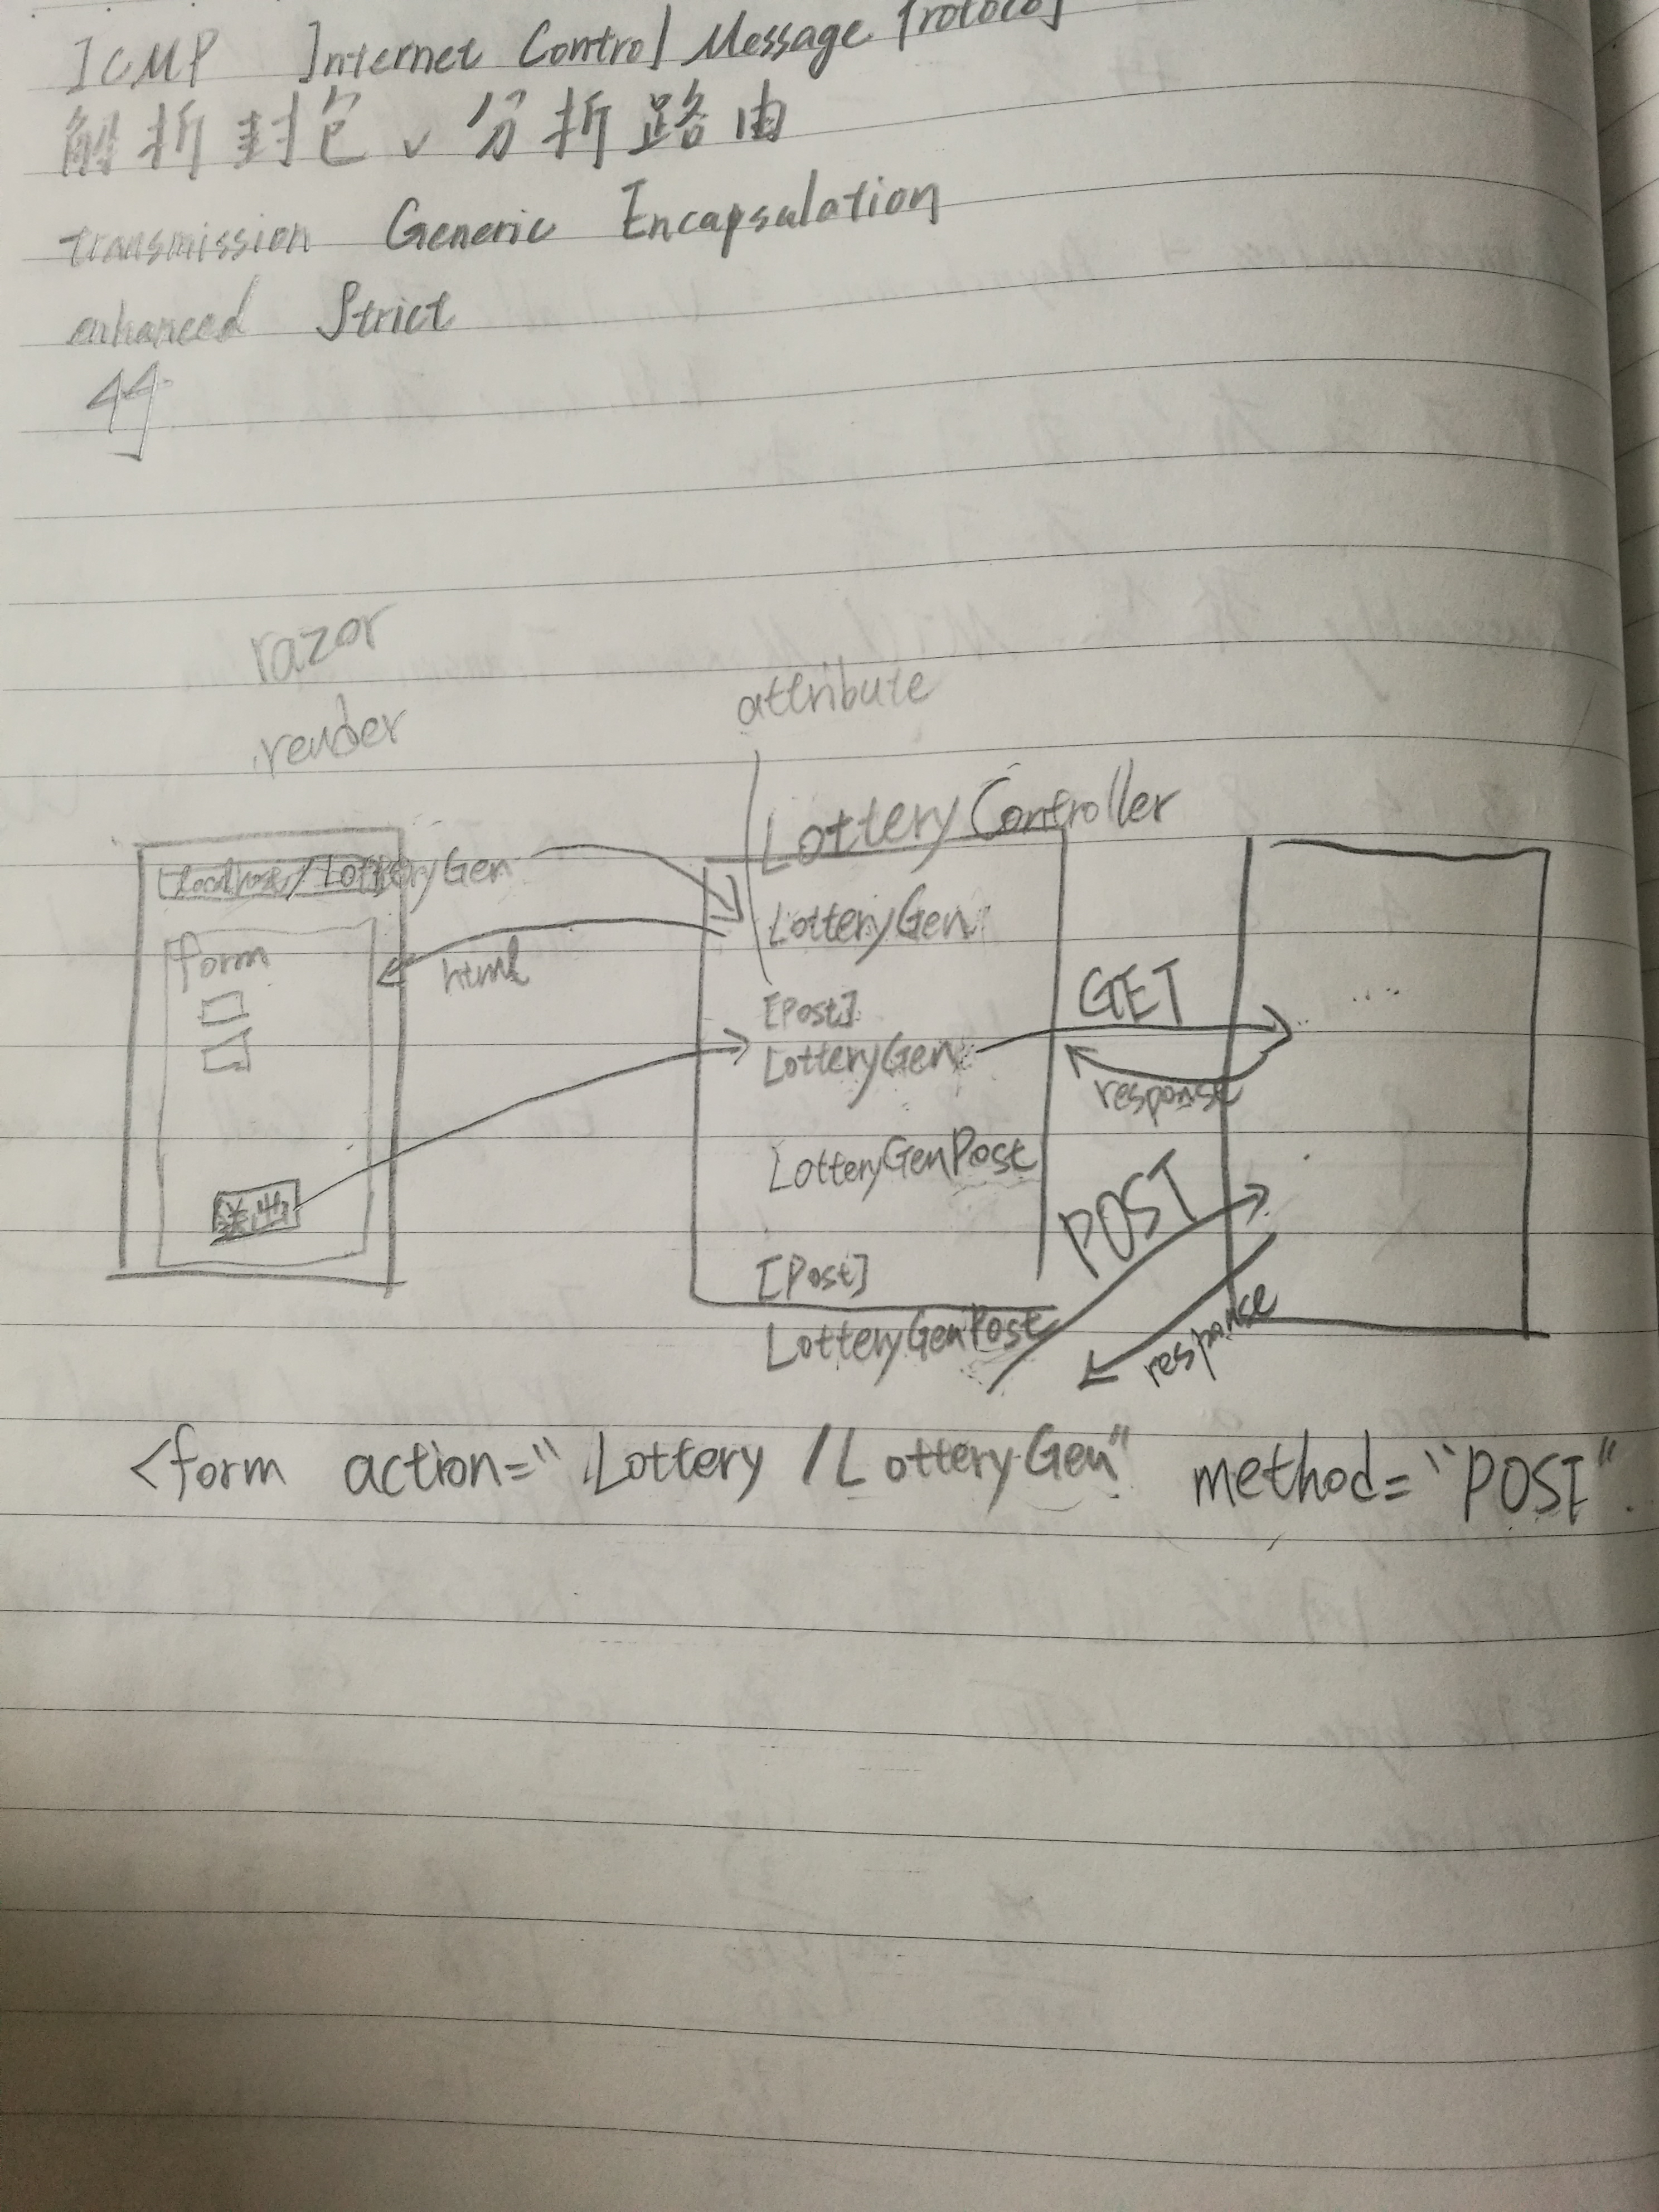 ICMP Internet Control Message Protocol
解析封包、分析路由
transmission Generic Encapsulation
enhanced Strict
44
razor
render
attribute
LotteryController
localhost/LotteryGen
LotteryGen
form
html
[Post]
LotteryGen
GET
response
LotteryGenPost
POST
送出
[Post]
LotteryGenPost
response
<form action="Lottery/LotteryGen" method="POST"